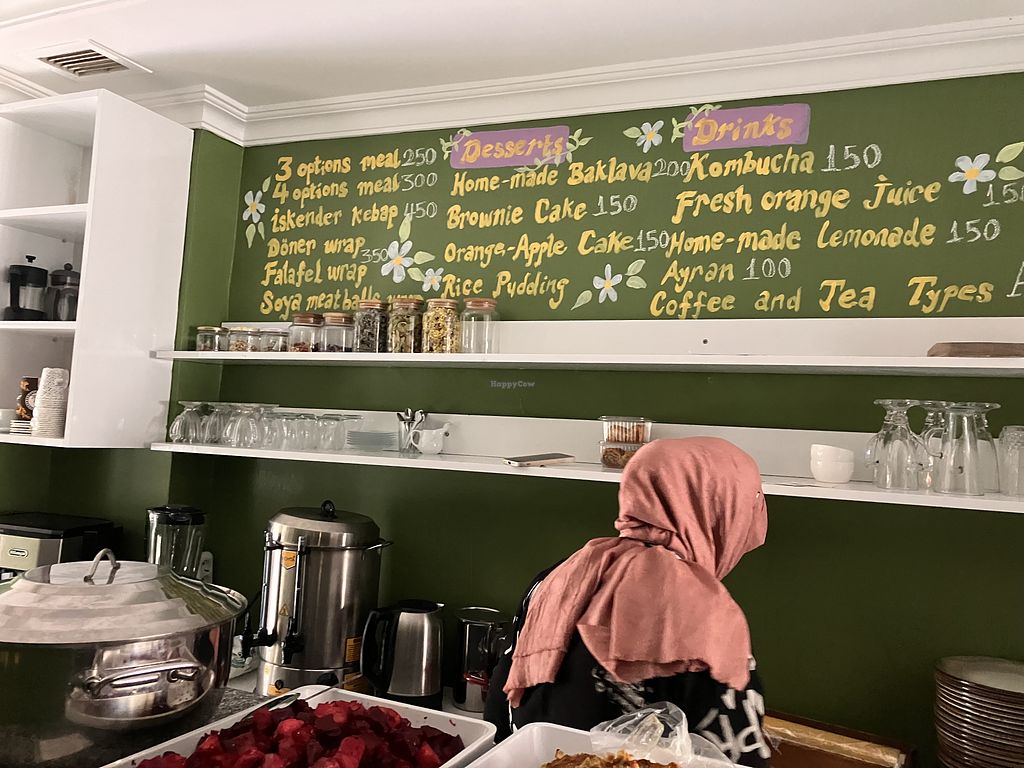 3 options meal 250
4 options meal 300
İskender kebap 450
Döner wrap
350
Falafel wrap
Soya meatballs wrap
Desserts
Home-made Baklava 200
Brownie Cake 150
Orange-Apple Cake 150
Rice Pudding
Drinks
Kombucha 150
Fresh orange juice 150
Home-made lemonade 150
Ayran 100
Coffee and Tea Types
HappyCow